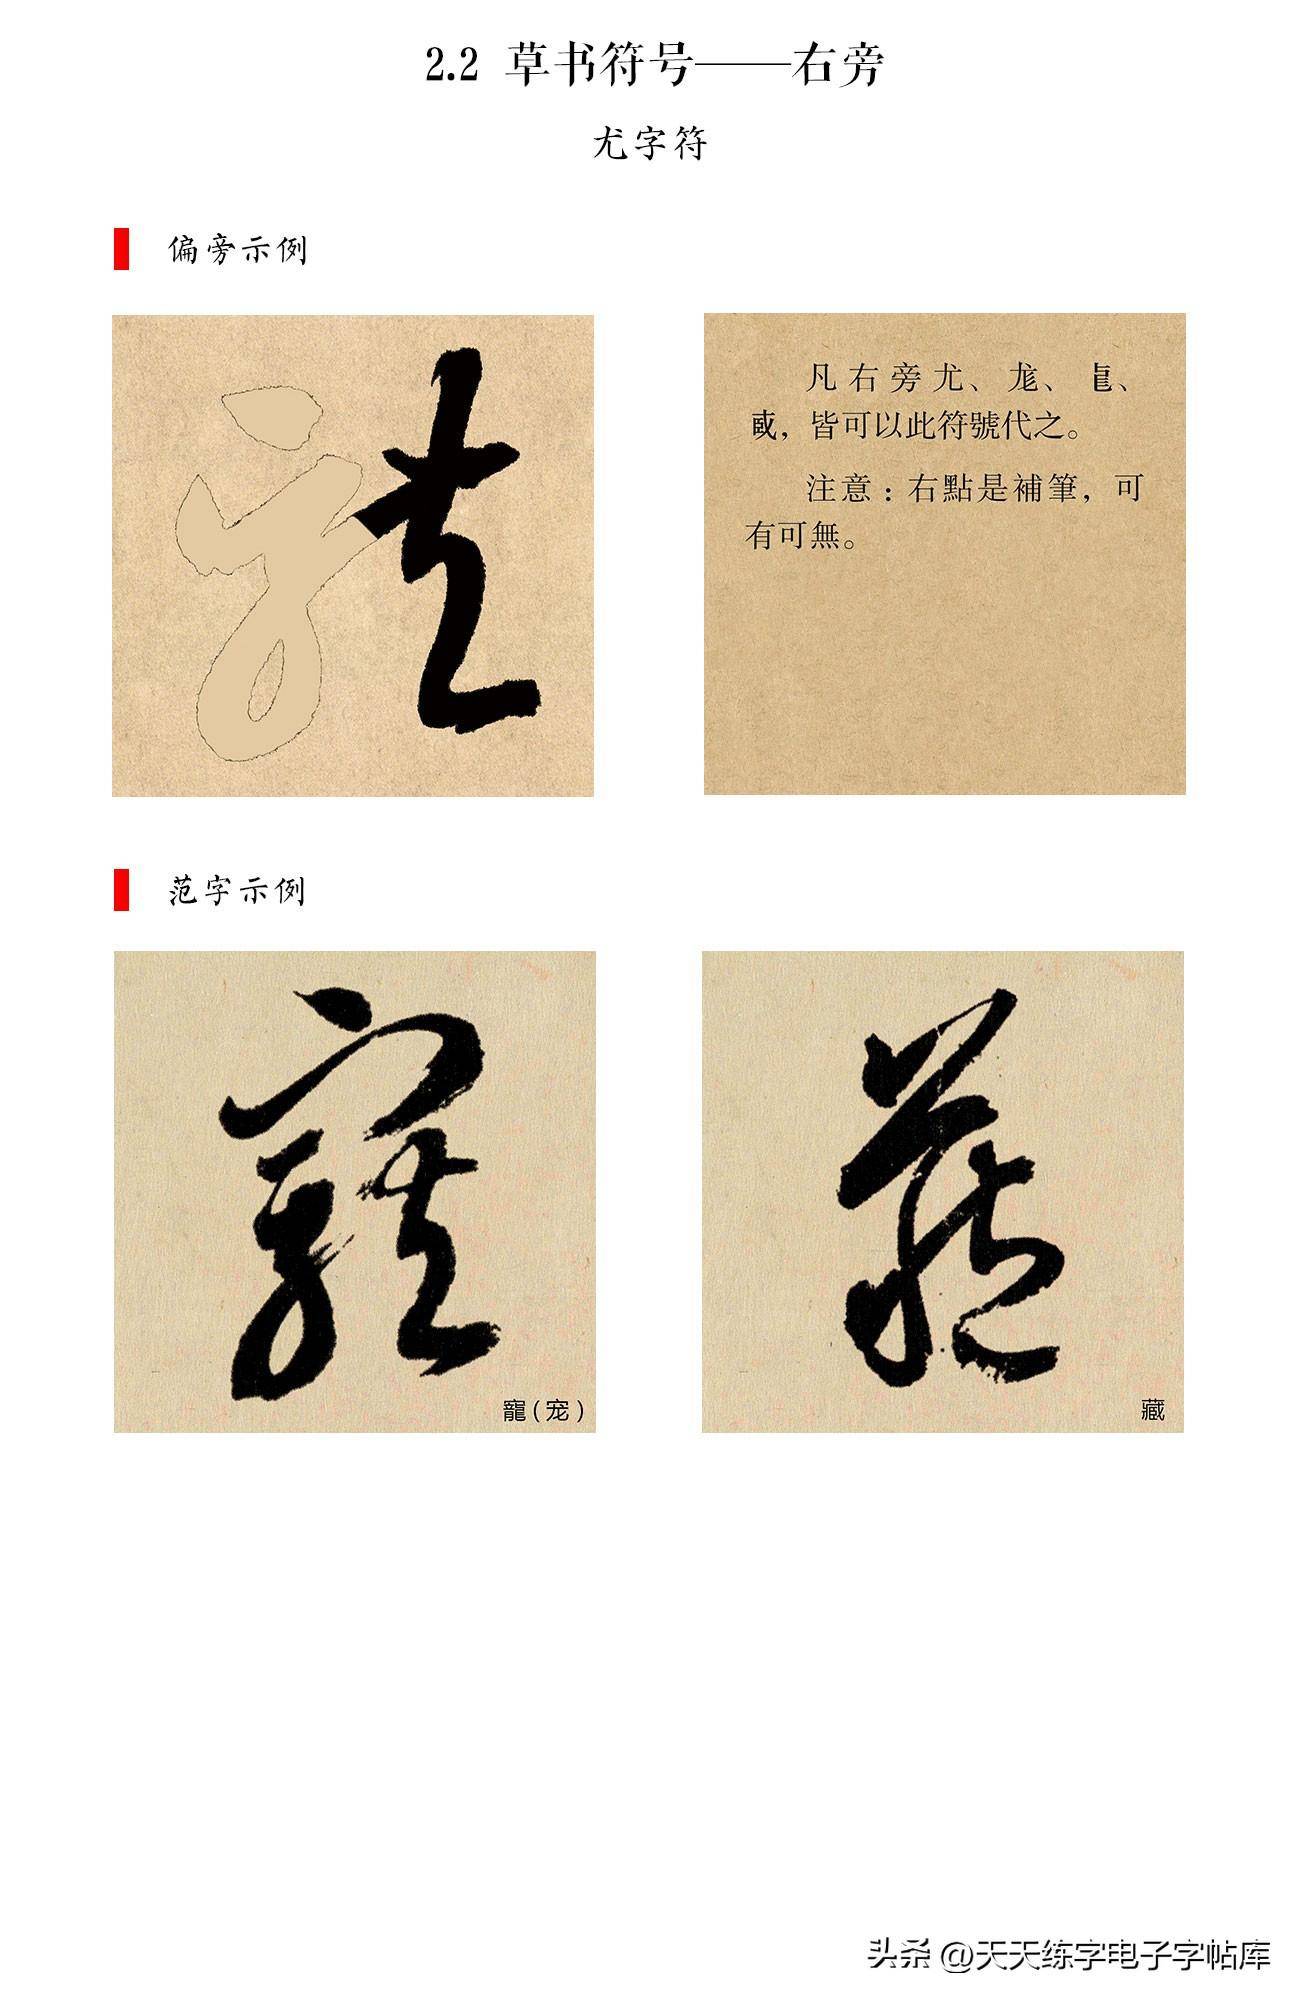 2.2 草书符号——右旁
尤字符
偏旁示例
凡右旁尤、尨、
，皆可以此符號代之。
注意：右點是補筆，可
有可無。
范字示例
寵(宠)
藏
头条 @天天练字电子字帖库